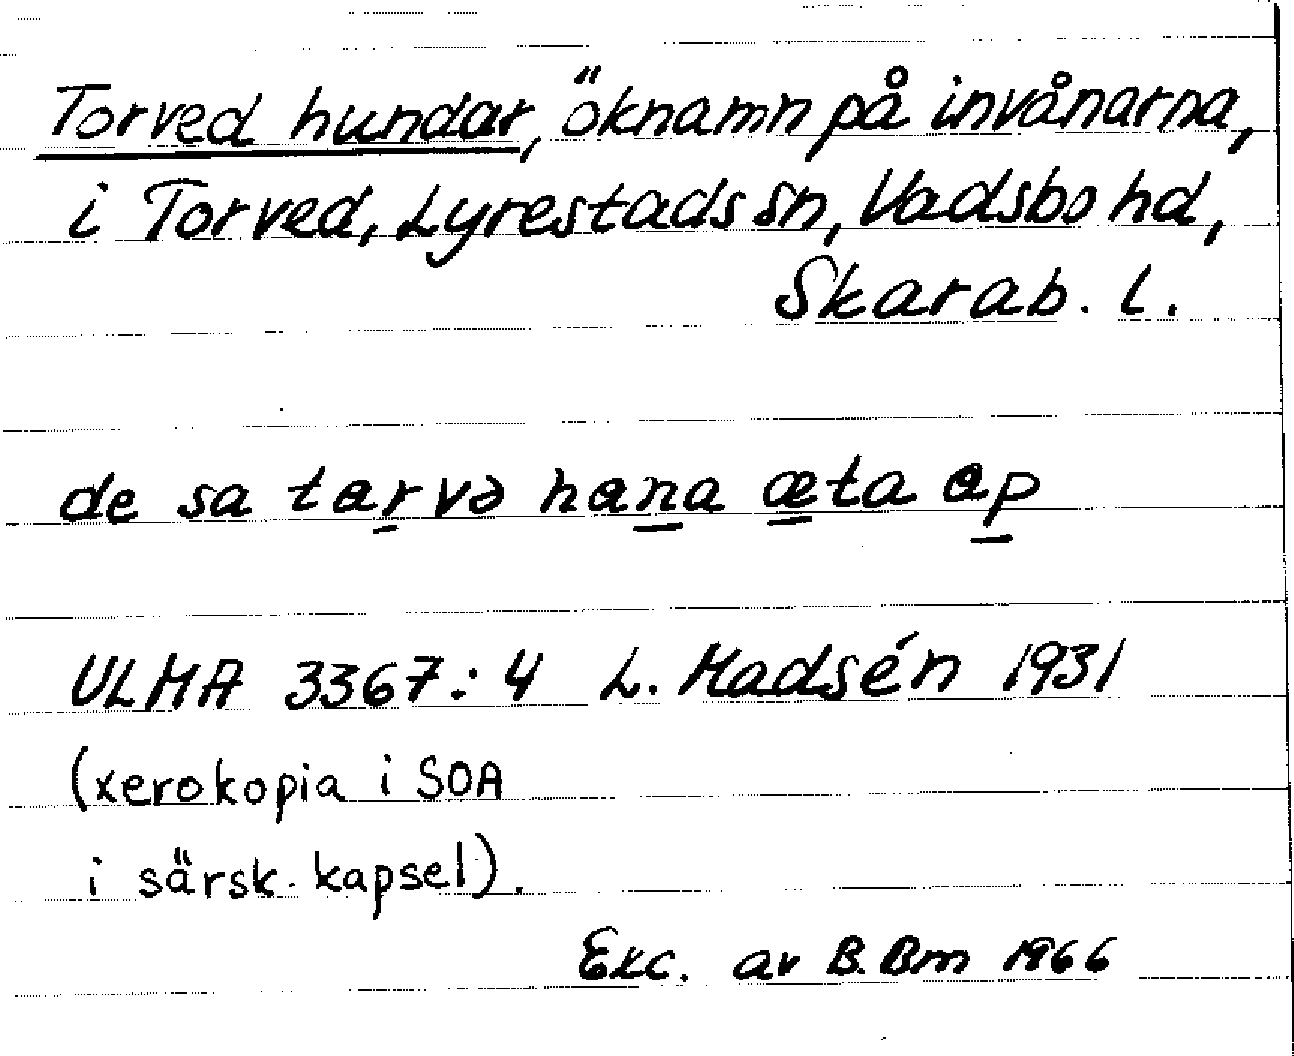 Torved hundar, öknamn på invånarna,
i Torved, Lyrestads sn, Vadsbo hd,
Skarab. l.
de sa tarvə hana æta ap
ULMA 3367:4 L. Madsén 1931
(xerokopia i SOA
i särsk. kapsel).
Exc. av B. Bm 1966